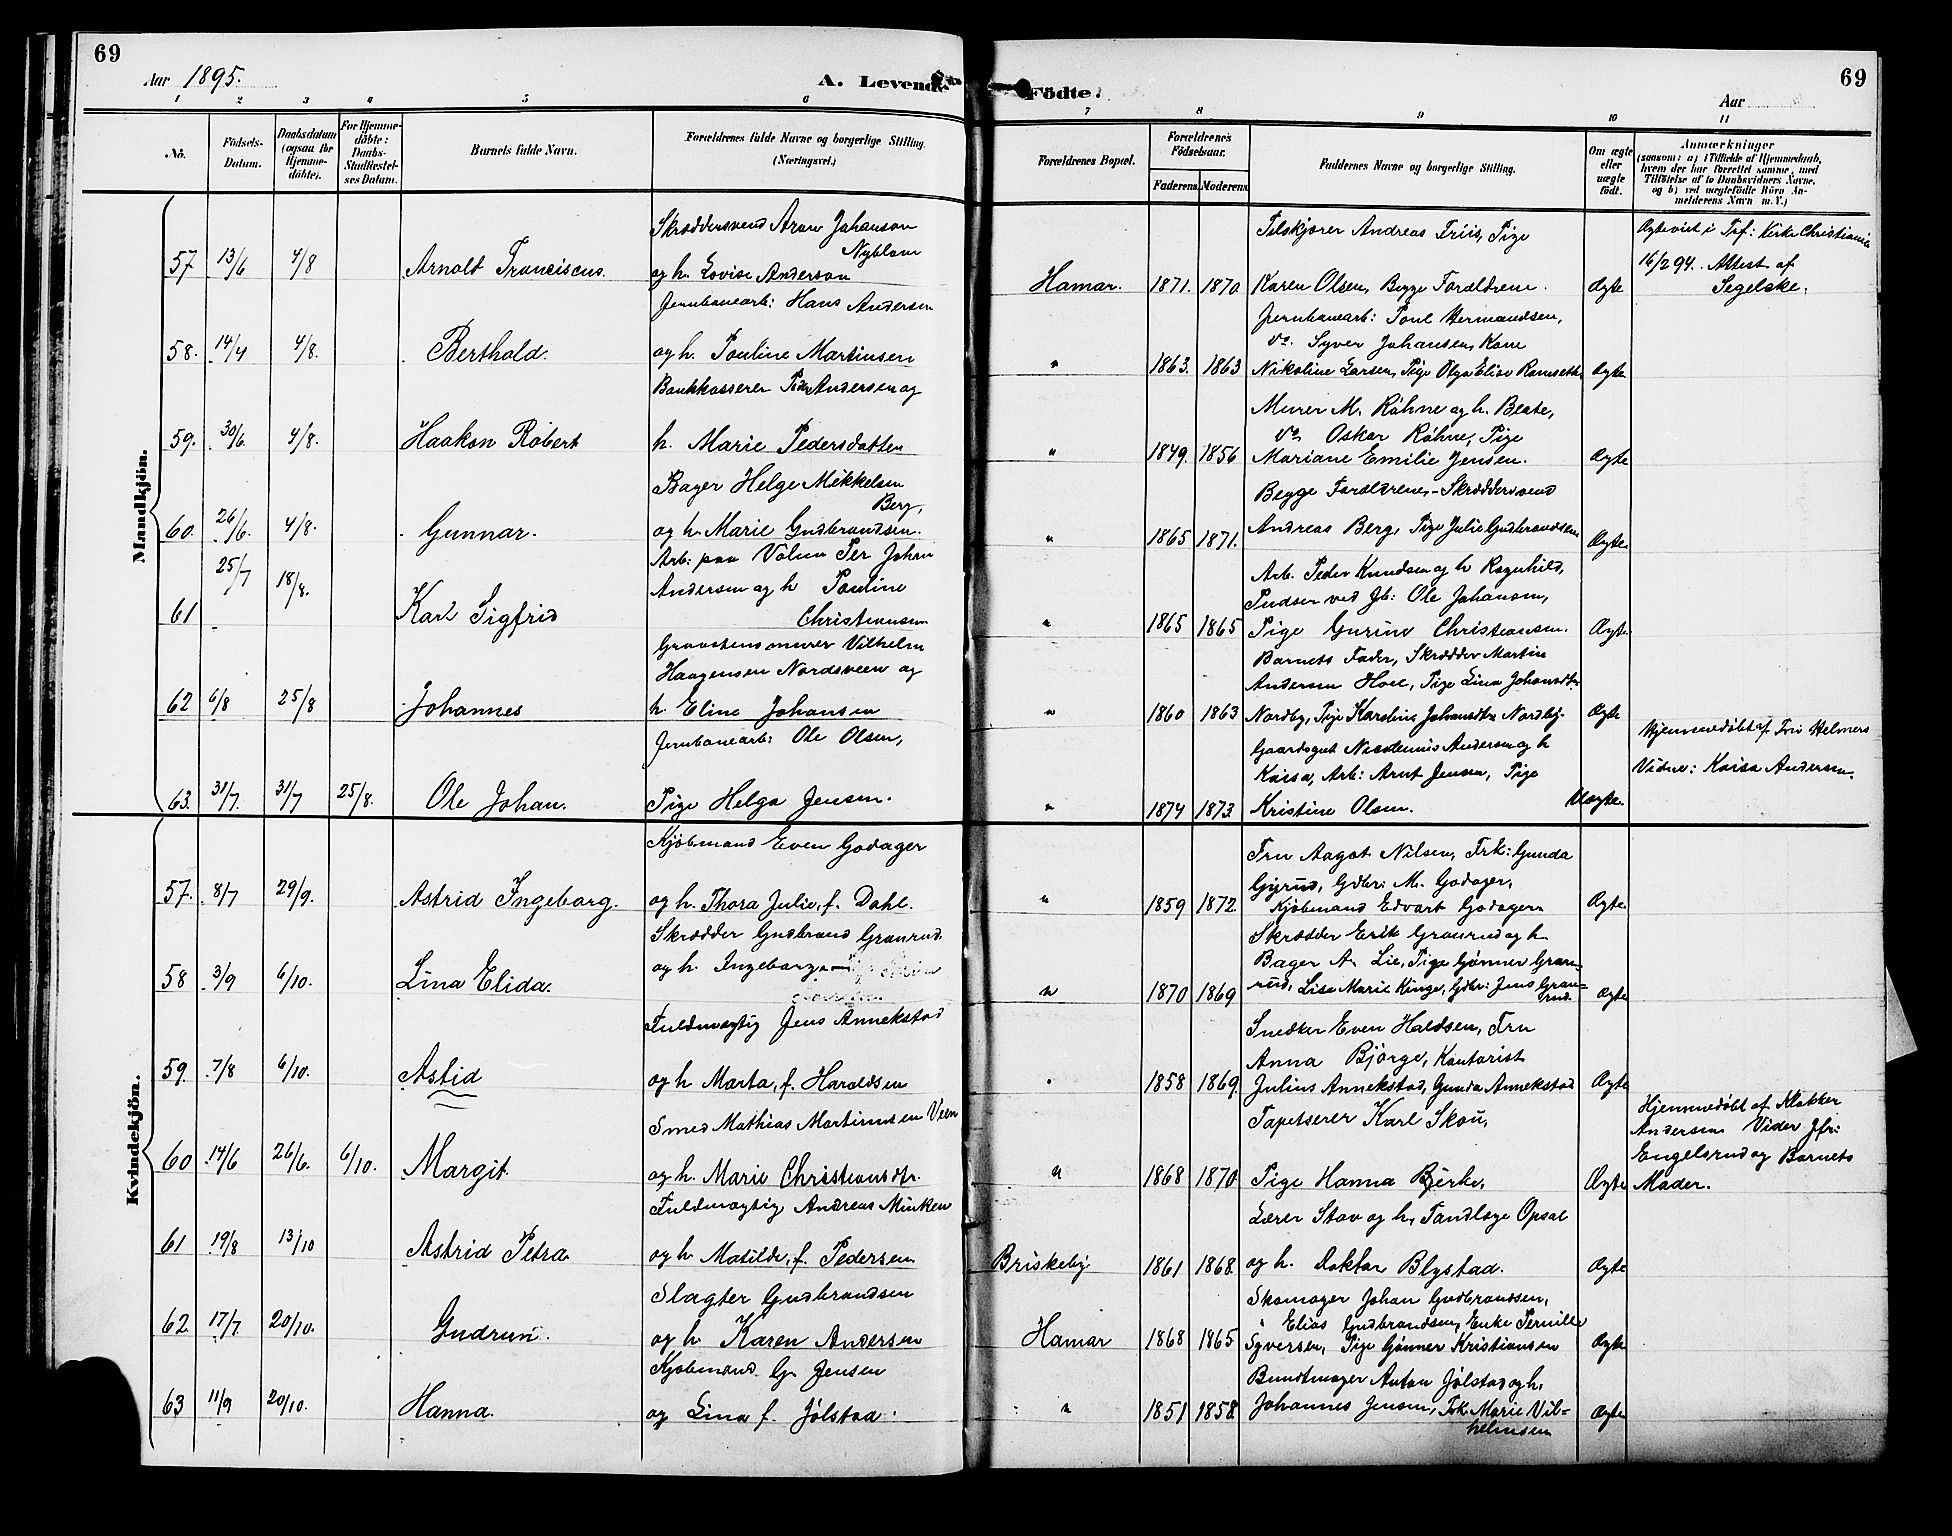 69
69
Aar 1895.
A. Levende Fødte.
Aar
1 2 3 4 5 6 7 8 9 10 11
No.
Födsels-Datum.
Daabsdatum (ogsaa for Hjemme-döbte).
For Hjemme-döbte: Daabs-Stadfæstel-ses Datum.
Barnets fulde Navn.
Forældrenes fulde Navne og borgerlige Stilling. (Næringsvei.)
Forældrenes Bopæl.
Forældrenes Födselsaar.
Faderens. Moderens.
Faddernes Navne og borgerlige Stilling.
Om ægte eller uægte födt.
Anmærkninger
(saasom: a) i Tilfælde af Hjemmedaab, hvem der har forrettet samme, med Tilföielse af to Daabsvidners Navne, og b) ved uægtefödte Börn Anmelderens Navn m.V.)
Mandkjön.
57 13/6 4/8 Arnolt Franciscus.
Skræddersvend Aron Johanson Nyblom
og h. Lovise Anderson
Hamar. 1871. 1870
Felskjærer Andreas Friis, Pige
Karen Olsen, Begge Forældrene.
Ægte
Ægteviet i Trf: Kirke Christiania
16/2 94. Attest af
Segelske.
58. 14/4 4/8. Berthold.
Jernbanearb: Hans Andersen
og h. Pouline Martinsen
" 1863. 1863
Jernbanearb: Poul Hermandsen,
do. Syver Johansen, Kone
Nikoline Larsen, Pige Olga Elise Ramseth
Ægte
59. 30/6. 4/8. Haakon Robert
Bankkasserer Peder Andersen og
h. Marie Pedersdatter
" 1849. 1856
Murer M. Röhne og h. Beate,
do Oskar Röhne, Pige
Mariane Emilie Jensen.
Ægte
60. 26/6. 4/8. Gunnar.
Bager Helge Mikkelsen Berg,
og h. Marie Gudbrandsen.
" 1865 1871.
Begge Forældrene, Skræddersvend
Andreas Berg, Pige Julie Gudbrandsen
Ægte
61 25/7 18/8. Karl Sigfrid
Arb: paa Völun Per Johan
Andersen og h Pouline
Christiansen
" 1865 1865
Arb. Peder Knudsen og h Ragnhild,
Pudser ved Jb: Ole Johansen,
Pige Gurine Christiansen.
Ægte
62 6/8 25/8 Johannes
Graastensmurer Vilhelm
Haagensen Nordsveen og
h. Eline Johansen
" 1860 1863
Barnets Fader, Skrædder Martin
Andersen Hoel, Pige Lina Johansdtr
Nordby, Pige Karoline Johansdtr Nordby.
Ægte
63. 31/7. 31/7 25/8. Ole Johan.
Jernbanearb: Ole Olsen,
Pige Helga Jensen.
" 1874 1873.
Gaardsgut Nicolenius Andersen og h
Kaisa, Arb: Arnt Jensen, Pige
Kristine Olsen.
Uægte.
Hjemmedöbt af Fru Helmers
Vidne: Kaisa Andersen.
Kvindekjön.
57. 8/7 29/9. Astrid Ingeborg.
Kjöbmand Even Godager
og h. Thora Julie, f. Dahl.
" 1859 1872.
Fru Aagot Nilsen, Frk: Gunda
Gjörud, Gdbr: M. Godager,
Kjöbmand Edvart Godager
Ægte
58 3/9 6/10. Lina Elida.
Skrædder Gudbrand Granrud
og h. Ingeborg
" 1870 1869
Skrædder Erik Granrud og h
Bager A. Lie, Pige Gönner Gran-
rud, Lise Marie Kinge, Gdbr: Jens Gran-
rud.
Ægte
59. 7/8 6/10. Astid
Fuldmægtig Jens Annekstad
og h Marta, f. Haroldsen
" 1858 1869.
Snedker Even Haldsen, Fru
Anna Björge, Kontorist
Julius Annekstad, Gunda Annekstad
Ægte
60 14/6 26/6. 6/10. Margit
Smed Mathias Martinusen Veen
og h. Marie Christiansdtr.
" 1868 1870
Tapetserer Karl Skou,
Pige Hanna Bjerke,
Ægte
Hjemmedöbt af Klokker
Andersen Vidner Jfr:
Engelsrud og Barnets
Moder.
61 19/8 13/10 Astrid Petra
Fuldmægtig Andreas Minken
og h. Matilde, f. Pedersen
Briskeby 1861 1868.
Lærer Stav og h, Tandlæge Opsal
og h. Doktor Blystad.
Ægte
62 17/7 20/10. Gudrun.
Slagter Gudbrandsen
og h. Karen Andersen
Hamar 1868 1865
Skomager Johan Gudbrandsen,
" Elias Gudbrandsen, Enke Pernille
Syversen, Pige Gönner Kristiansen
Ægte
63 11/9 20/10. Hanna.
Kjöbmand. G. Jensen
og Lina f. Jölstad.
" 1851 1858.
Bundtmager Anton Jölstad og h.
Johannes Jensen, Frk. Marie Vil-
helmsen
Ægte